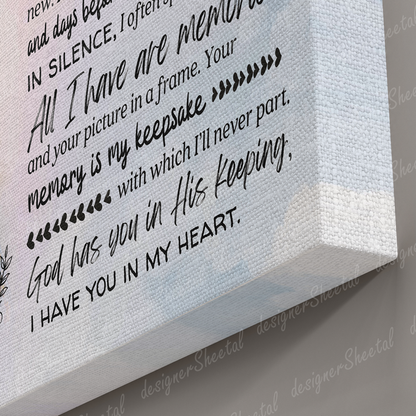 new.
and days before
IN SILENCE, I often
All I have are
and your picture in a frame. Your
memory is my keepsake
with which I'll never part.
God has you in His keeping,
I HAVE YOU IN MY HEART.
designerSheetal
designerSheetal
designerSheetal
designerSheetal
designerSheetal